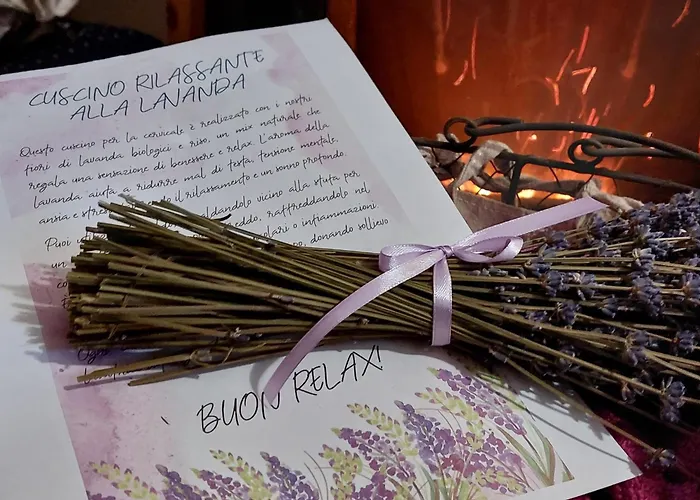 CUSCINO RILASSANTE
ALLA LAVANDA
Questo cuscino per la cervicale è realizzato con i nostri
fiori di lavanda biologici e riso, un mix naturale che
regala una sensazione di benessere e relax. L'aroma della
lavanda aiuta a ridurre mal di testa, tensione mentale,
ansia e il rilassamento e un sonno profondo.
Puoi scaldandolo vicino alla stufa per
un freddo, raffreddandolo nel
o infiammazioni.
donando sollievo
BUON RELAX!